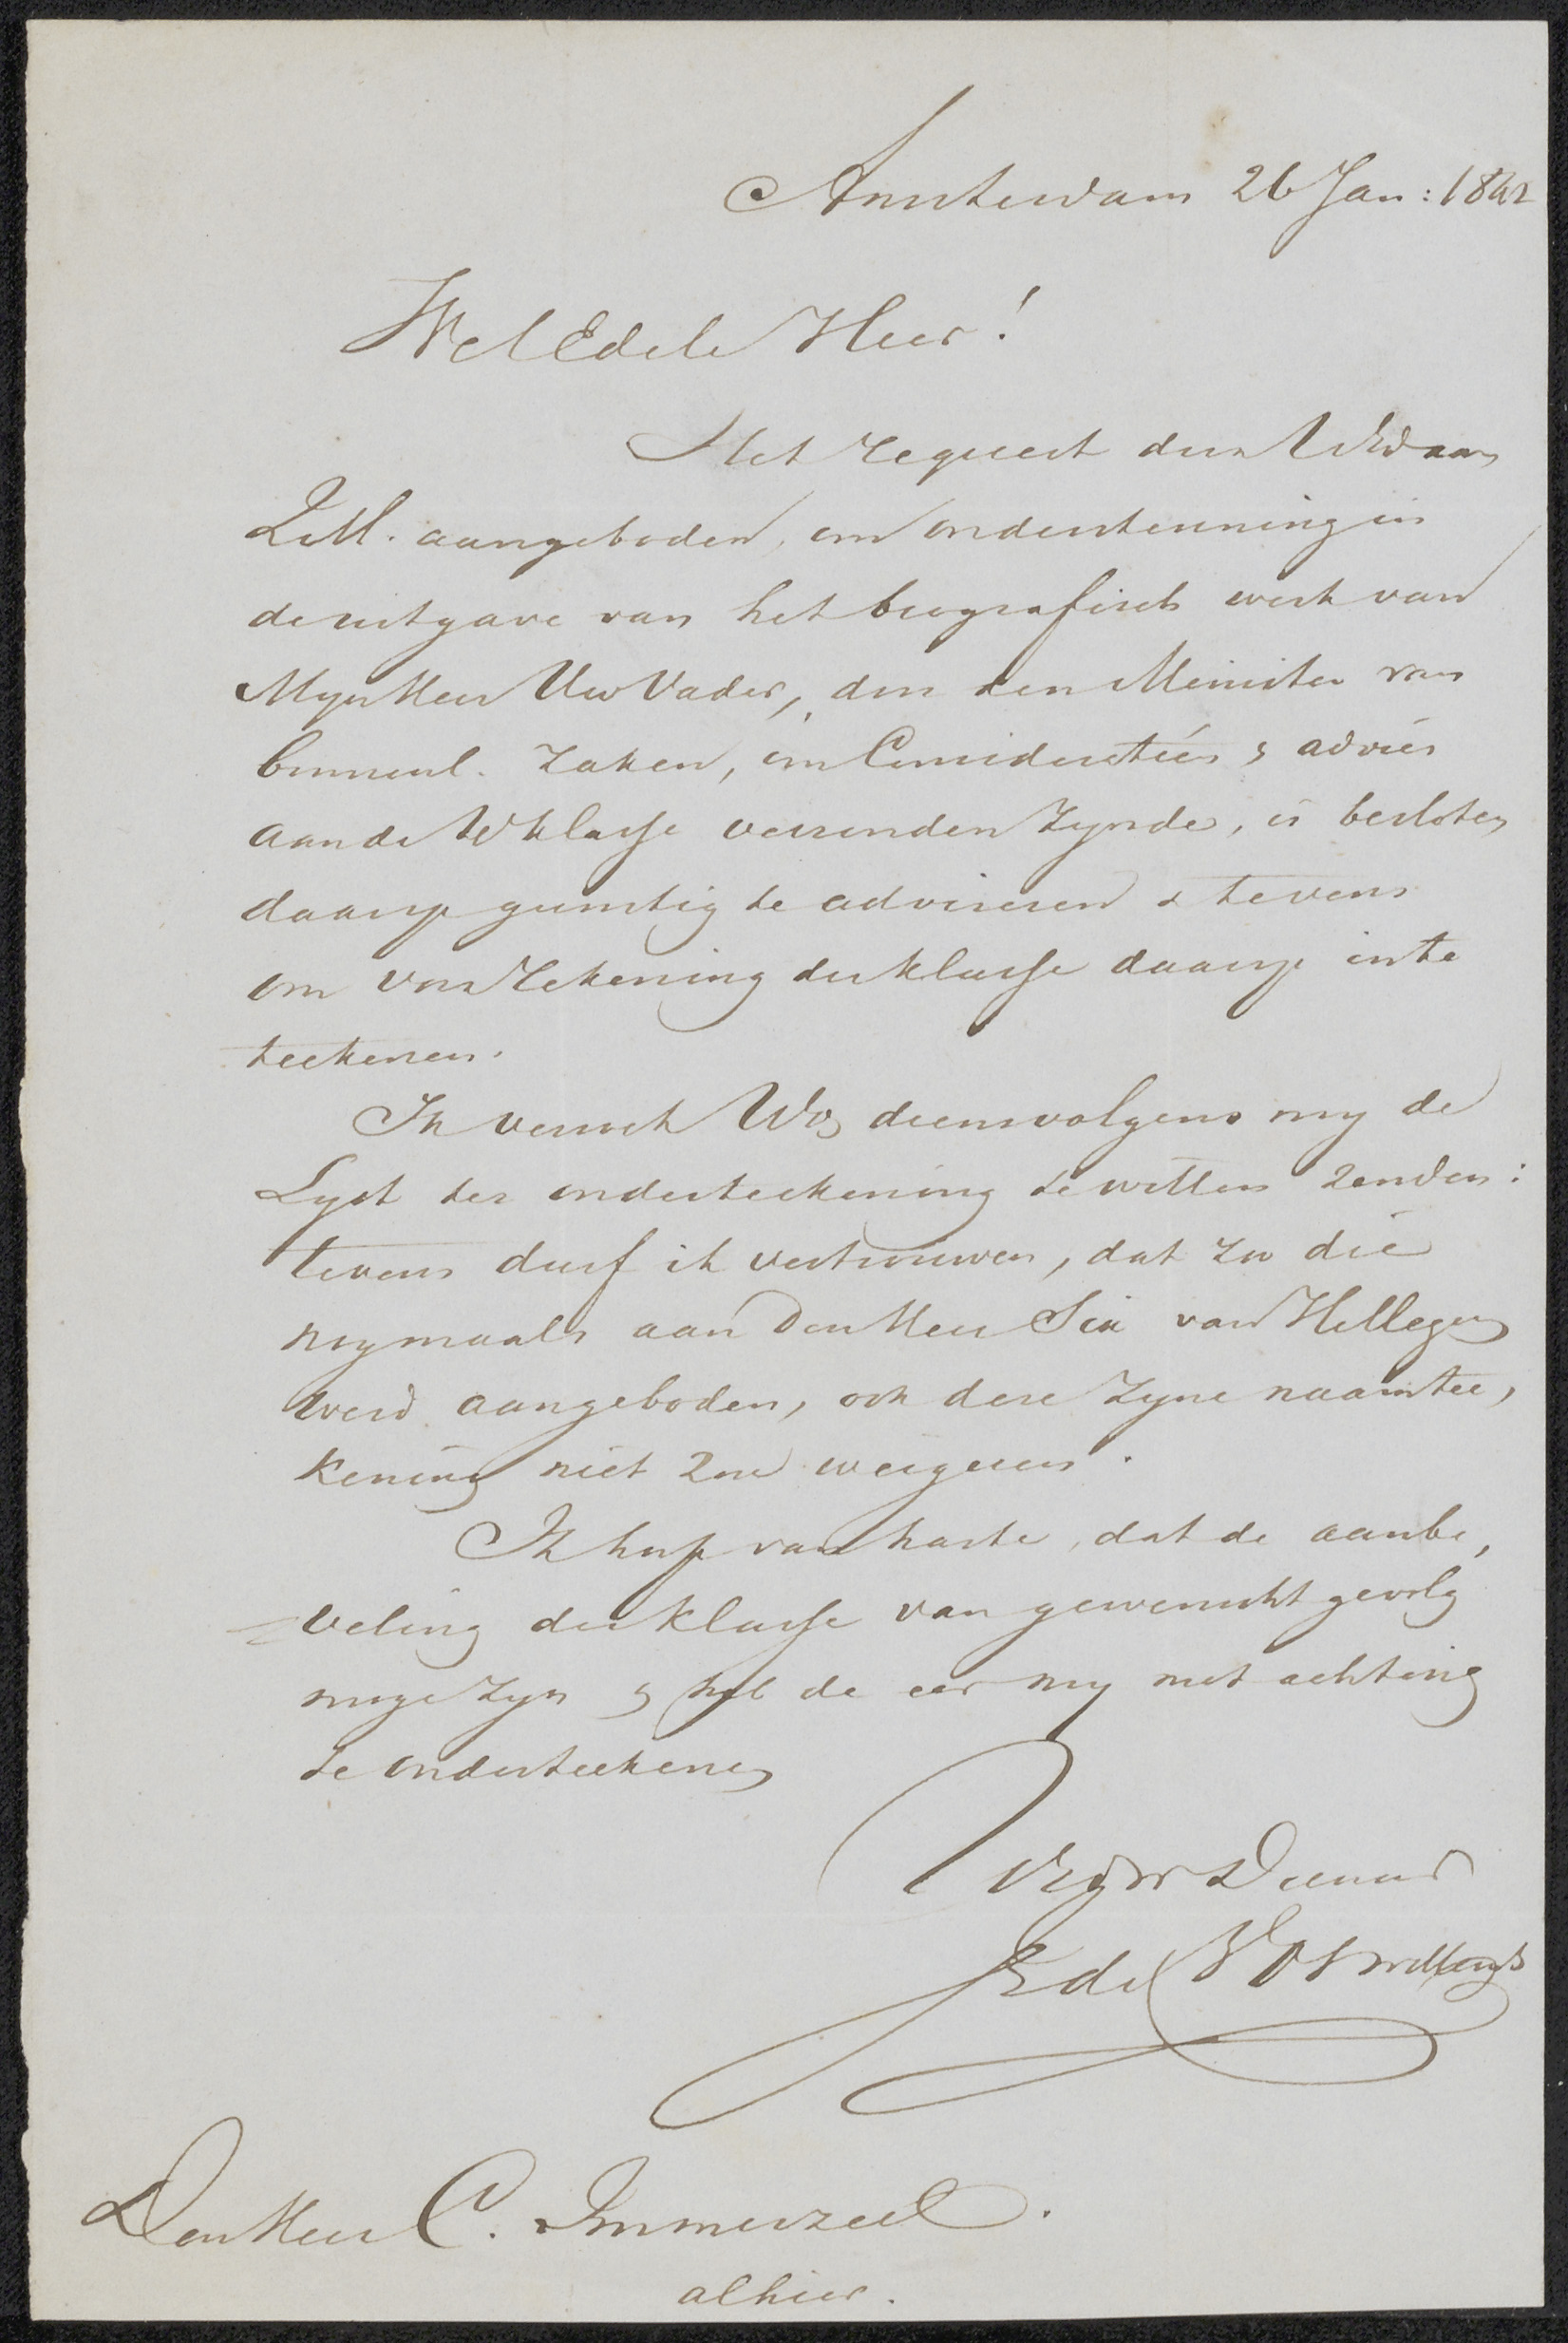 Amsterdam 26 Jan: 1842
WelEdele Heer!
Het request door UEd aan
Z.M. aangeboden, om ondersteuning in
de uitgave van het biografisch werk van
Mynheer Uw Vader, door den Minister van
binnenl. Zaken, om Consideratiën & advies
aan de klasse verzonden Zynde, is besloten
daarop gunstig te adviseren & tevens
om voor Rekening der klasse daarop in te
teekenen.
Ik verzoek dienvolgens my de
Lyst ter onderteekening te willen zenden:
tevens durf ik vertrouwen, dat zoo die
nogmaals aan Den Heer Six van Hillegom
werd aangeboden, ook deze Zyne naamtee,
kening niet zou weigeren.
Ik hoop van harte, dat de aanbe,
veling der klasse van gewenscht gevolg
moge Zyn & heb de eer my met achting
te onderteekenen
Dienaar
de Vos Willemsz
Den Heer C. Immerzeel.
alhier.